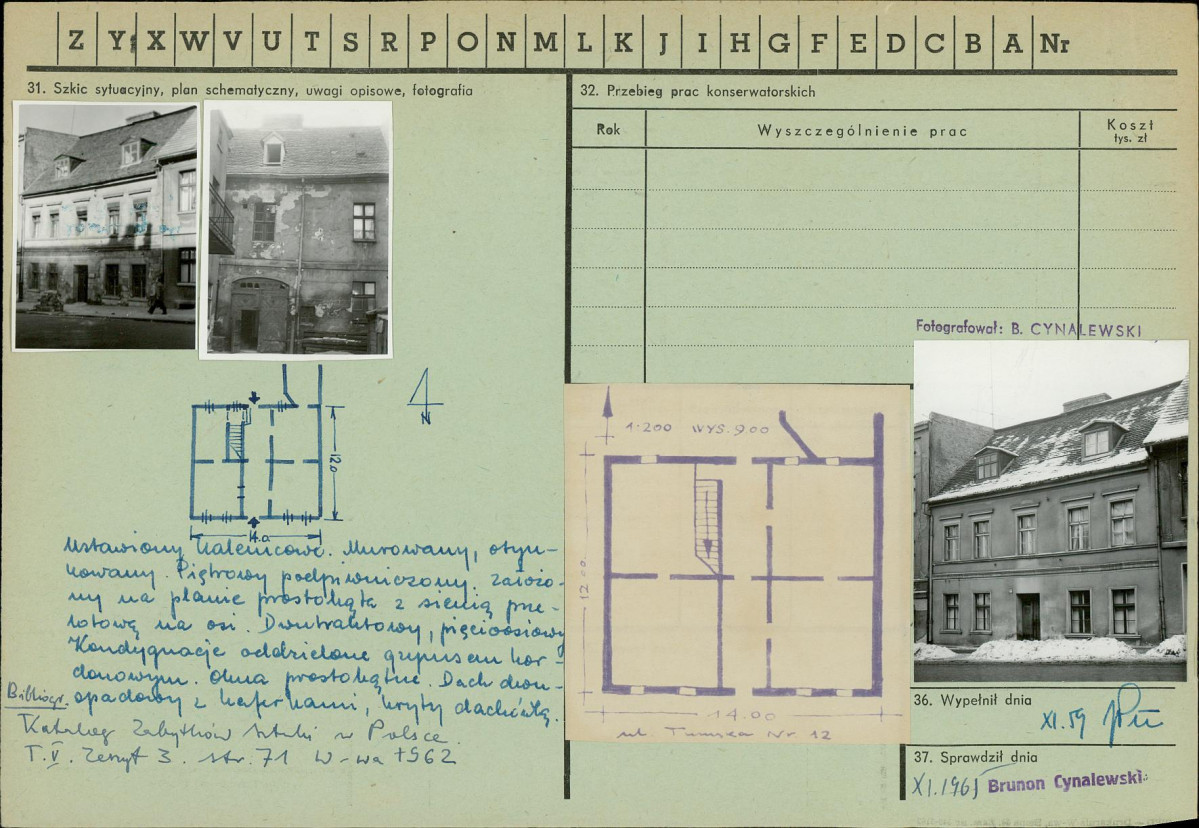 Z Y X W V U T S R P O N M L K J I H G F E D C B A Nr
31. Szkic sytuacyjny, plan schematyczny, uwagi opisowe, fotografia
N
12.0
14.0
Ustawiony kalenicowo. Murowany, otyn-
kowany. Piętrowy podpiwniczony. założo-
ny na planie prostokąta z sienią prze-
lotową na osi. Dwutraktowy, pięcioosiowy
Kondygnacje oddzielone gzymsem kor-
donowym. Okna prostokątne. Dach dwu-
spadowy z kaferkami, kryty dachówką.
Bibliogr.
Katalog Zabytków Sztuki w Polsce.
T. V. Zeszyt 3. str. 71 W-wa 1962
32. Przebieg prac konserwatorskich
Rok Wyszczególnienie prac Koszt
tys. zł
Fotografował: B. CYNALEWSKI
1:200 WYS. 9.00
12.00
14.00
ul. Tumska Nr. 12
36. Wypełnił dnia
XI.59
37. Sprawdził dnia
XI.1965 Brunon Cynalewski